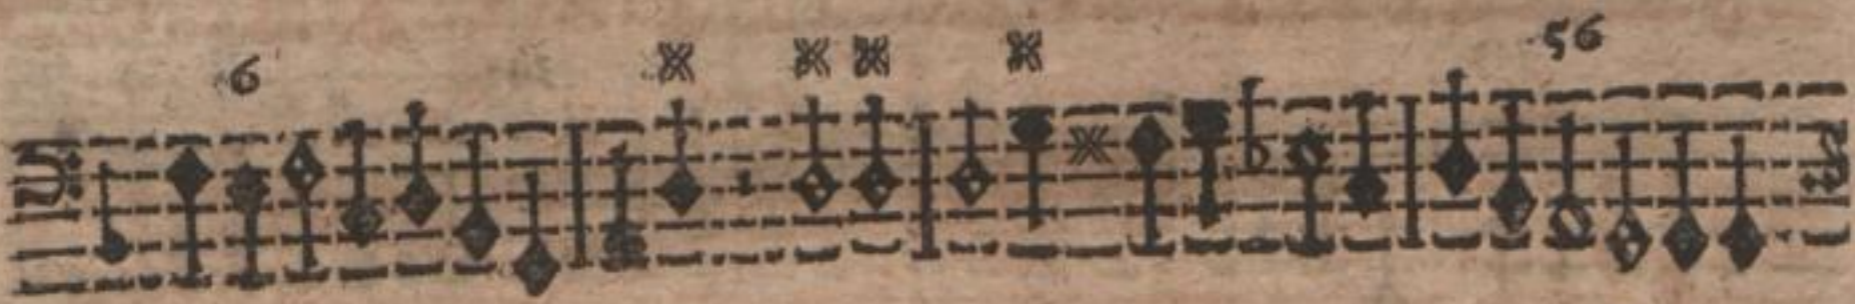 6 56